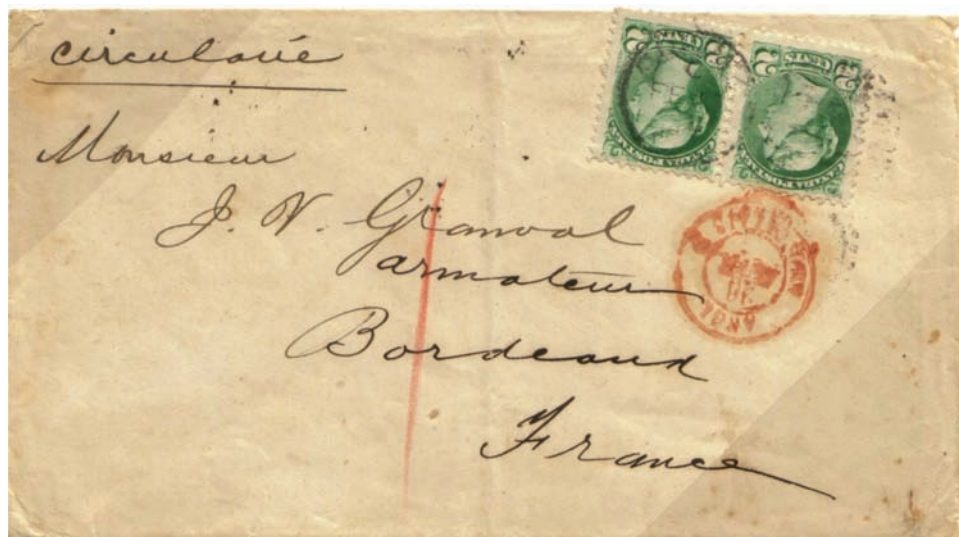 circulaire
Monsieur
J. V. Granval
armateur
Bordeaux
France
2 CENTS 2
2 CENTS 2
CANADA POSTAGE
CANADA POSTAGE
ANGL.